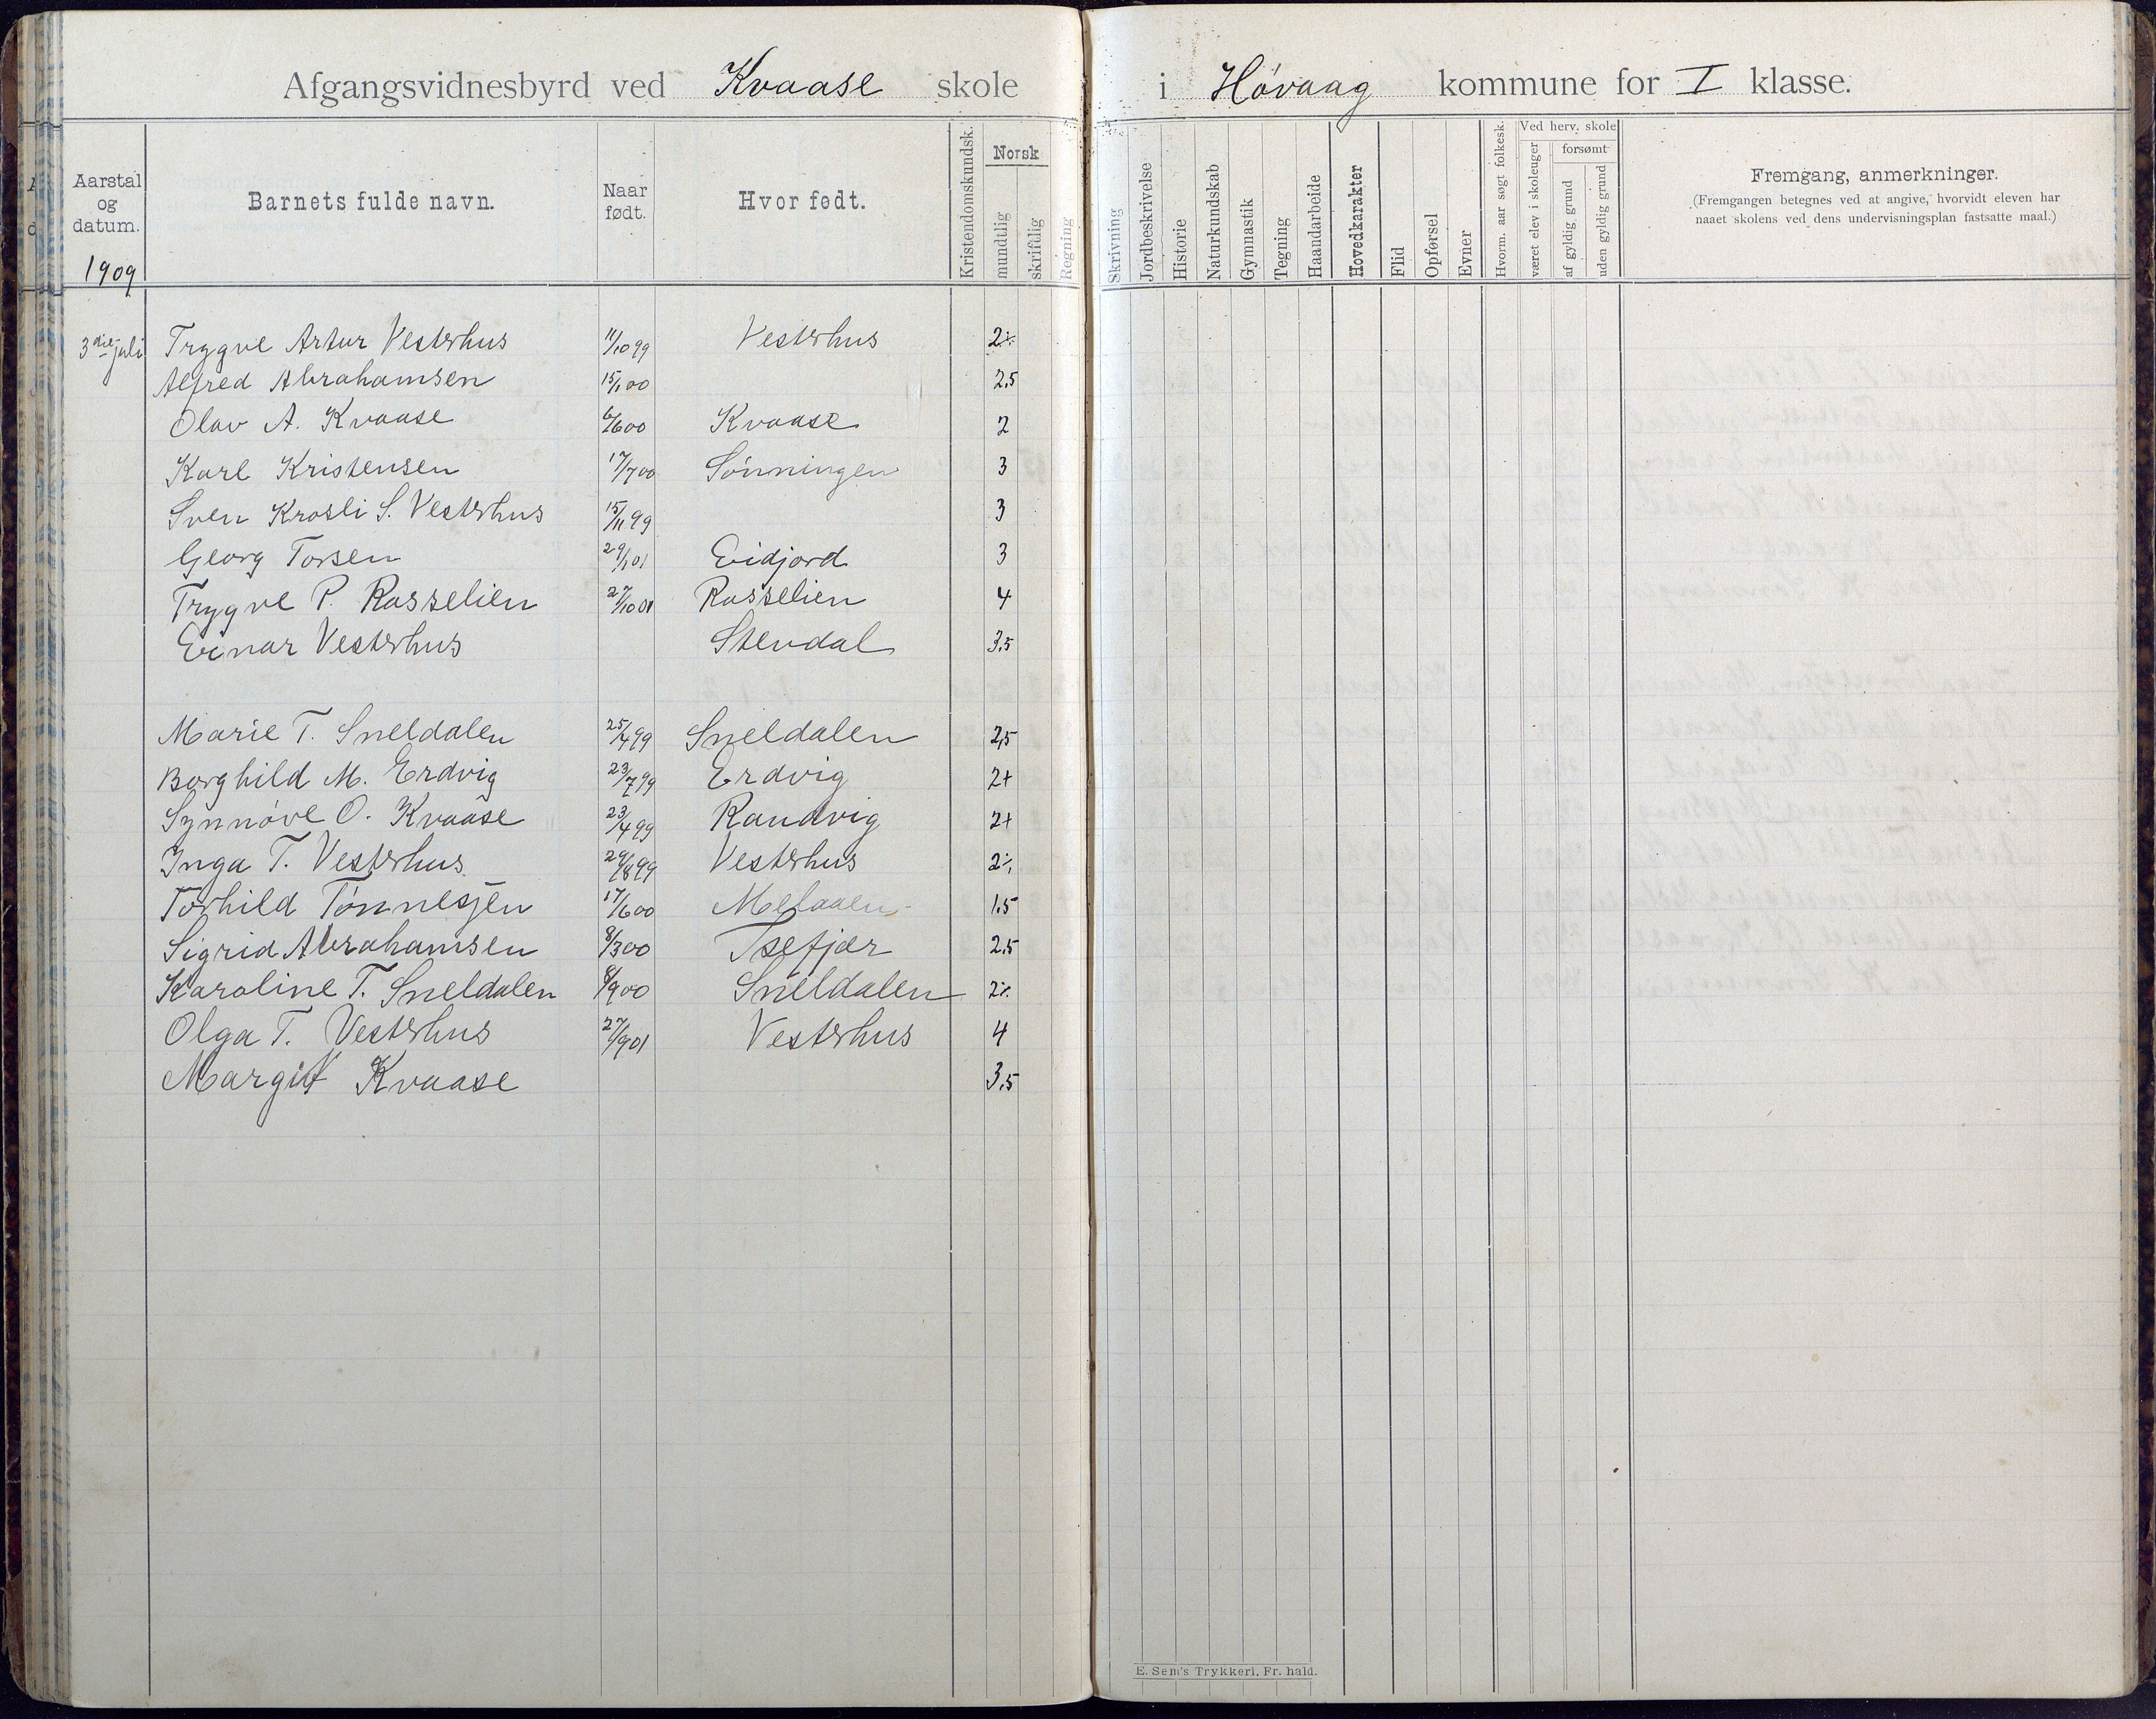 Afgangsvidnesbyrd ved Kvaase skole i Høvaag kommune for I klasse.
Aarstal og datum. Barnets fulde navn. Naar født. Hvor født. Kristendomskundsk. Norsk mundtlig skriftlig Regning Skrivning Jordbeskrivelse Historie Naturkundskab Gymnastik Tegning Haandarbeide Hovedkarakter Flid Opførsel Evner Hvorm. aar søgt folkesk. Ved herv. skole været elev i skoleuger forsømt af gyldig grund uden gyldig grund Fremgang, anmerkninger.
(Fremgangen betegnes ved at angive, hvorvidt eleven har
naaet skolens ved dens undervisningsplan fastsatte maal.)
1909
3die juli Trygve Artur Vesterhus 11/10 99 Vesterhus 2÷
Alfred Abrahamsen 15/1 00 2,5
Olav A. Kvaase 6/6 00 Kvaase 2
Karl Kristensen 17/7 00 Sönningen 3
Sven Krosli S. Vesterhus 15/11 99 3
Georg Torsen 29/1 01 Eidjord 3
Trygve P. Rosselien 27/10 01 Rosselien 4
Einar Vesterhus Stendal 3,5
Marie T. Sneldalen 25/4 99 Sneldalen 2,5
Borghild M. Erdvig 23/7 99 Erdvig 2+
Synnöve O. Kvaase 23/4 99 Randvig 2+
Inga T. Vesterhus 29/8 99 Vesterhus 2÷
Torhild Tönnesjen 17/6 00 1,5
Sigrid Abrahamsen 8/3 00 Isefjær 2,5
Karoline T. Sneldalen 8/9 00 Sneldalen 2÷
Olga T. Vesterhus 27/9 01 Vesterhus 4
Margit Kvaase 3,5
E. Sem's Trykkeri, Fr. hald.